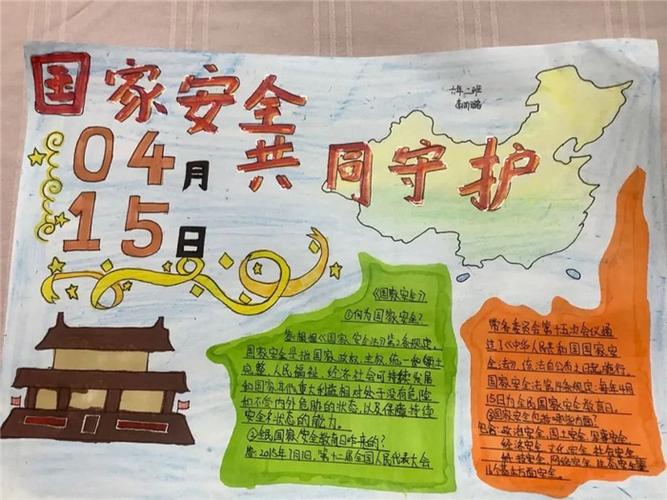 国家安全
共同守护
04月
15日
六年二班
《国家安全》
①何为国家安全?
答:根据《国家安全法》第2条规定,
国家安全是指国家政权、主权、统一和领土
完整、人民福祉、经济社会可持续发展
和国家其他重大利益相对处于没有危险
和不受内外威胁的状态,以及保障持续
安全状态的能力。
②全民国家安全教育日咋来的?
答:2015年7月1日,第十二届全国人民代表大会
常务委员会第十五次会议通
过了《中华人民共和国国家安
全法》,该法自公布之日起施行。
国家安全法第14条规定:每年4月
15日为全民国家安全教育日。
③国家安全包括哪些方面?
包含:政治安全、国土安全、军事安全
经济安全、文化安全、社会安全
网络安全、生态安全
16个基本方面安全。